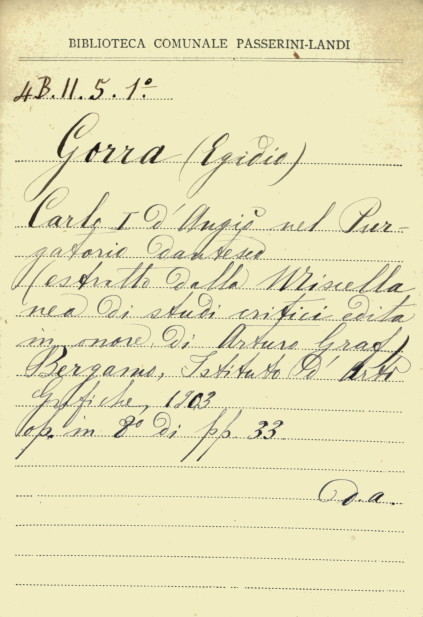 BIBLIOTECA COMUNALE PASSERINI-LANDI
4B.II.5.1º
Gorra (Egidio)
Carlo I d'Angiò nel Pur-
gatorio dantesco
(estratto dalla Miscella
nea di studi critici edita
in onore di Arturo Graf)
Bergamo, Istituto d'Arti
Grafiche, 1903
op. in 8º di pp. 33
d.a.